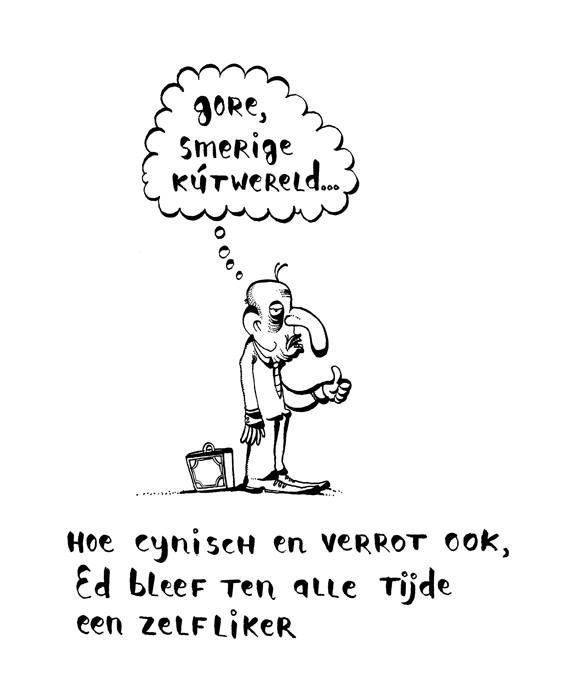 gore,
smerige
kútwereld...
Hoe cynisch en verrot ook,
Ed bleef ten alle tijde
een zelfliker